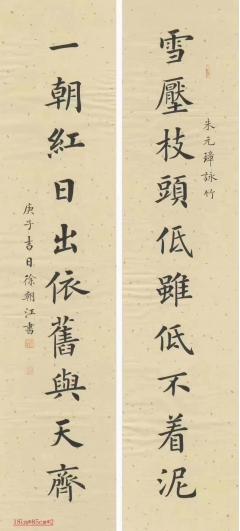 雪壓枝頭低雖低不着泥
朱元璋詠竹
一朝紅日出依舊與天齊
庚子吉日徐朝江書
18cm*85cm*2